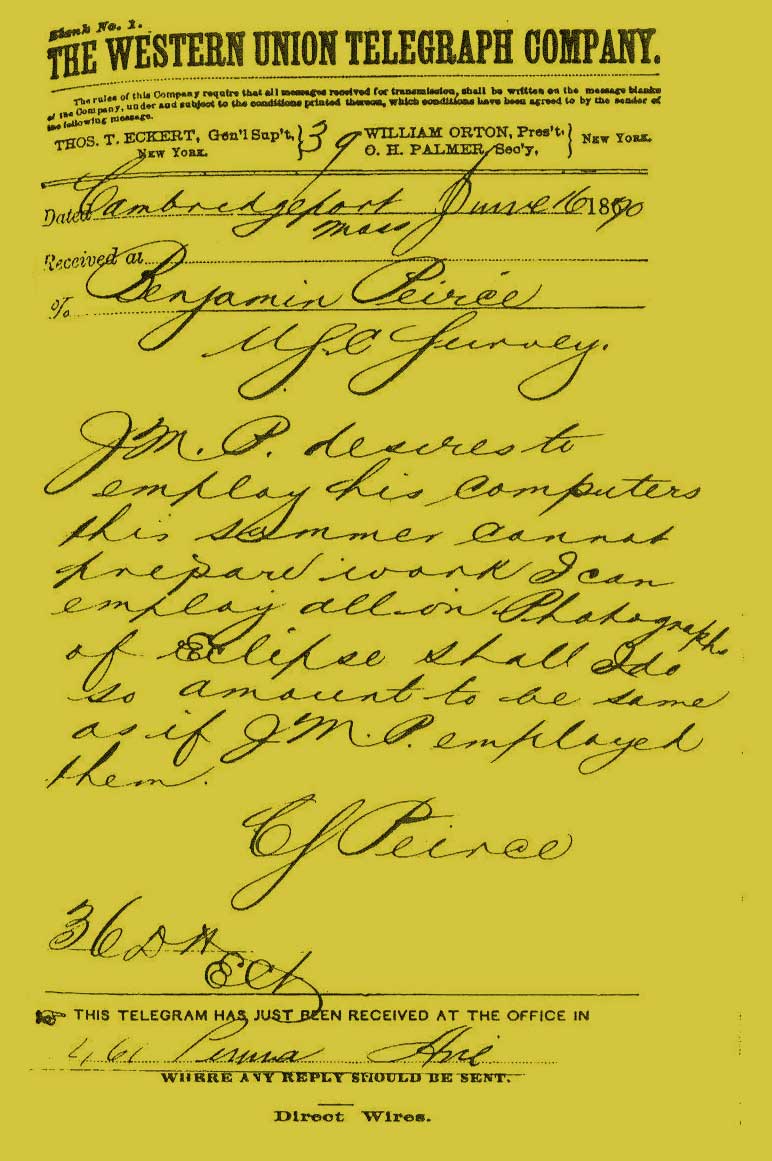 Blank No. 1.
THE WESTERN UNION TELEGRAPH COMPANY.
The rules of this Company require that all messages received for transmission, shall be written on the message blanks
of the Company, under and subject to the conditions printed thereon, which conditions have been agreed to by the sender of
the following message.
THOS. T. ECKERT, Gen'l Sup't, } 39 WILLIAM ORTON, Pres't, } NEW YORK.
NEW YORK. O. H. PALMER, Sec'y,
Dated Cambridgeport June 16 1870
Mass
Received at
To Benjamin Peirce
U.S.C Survey.
J.M. P. desires to
employ his computers
this summer cannot
prepare work I can
employ all on Photographs
of Eclipse shall I do
so amount to be same
as if J.M. P. employed
them.
C S Peirce
36 DH
THIS TELEGRAM HAS JUST BEEN RECEIVED AT THE OFFICE IN
Penna Ave
WHERE ANY REPLY SHOULD BE SENT.
Direct Wires.